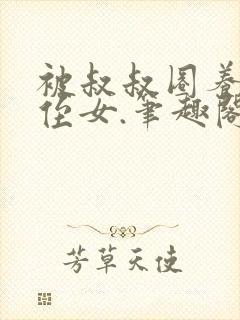 被叔叔圈养
侄女.笔趣阁
芳草天使